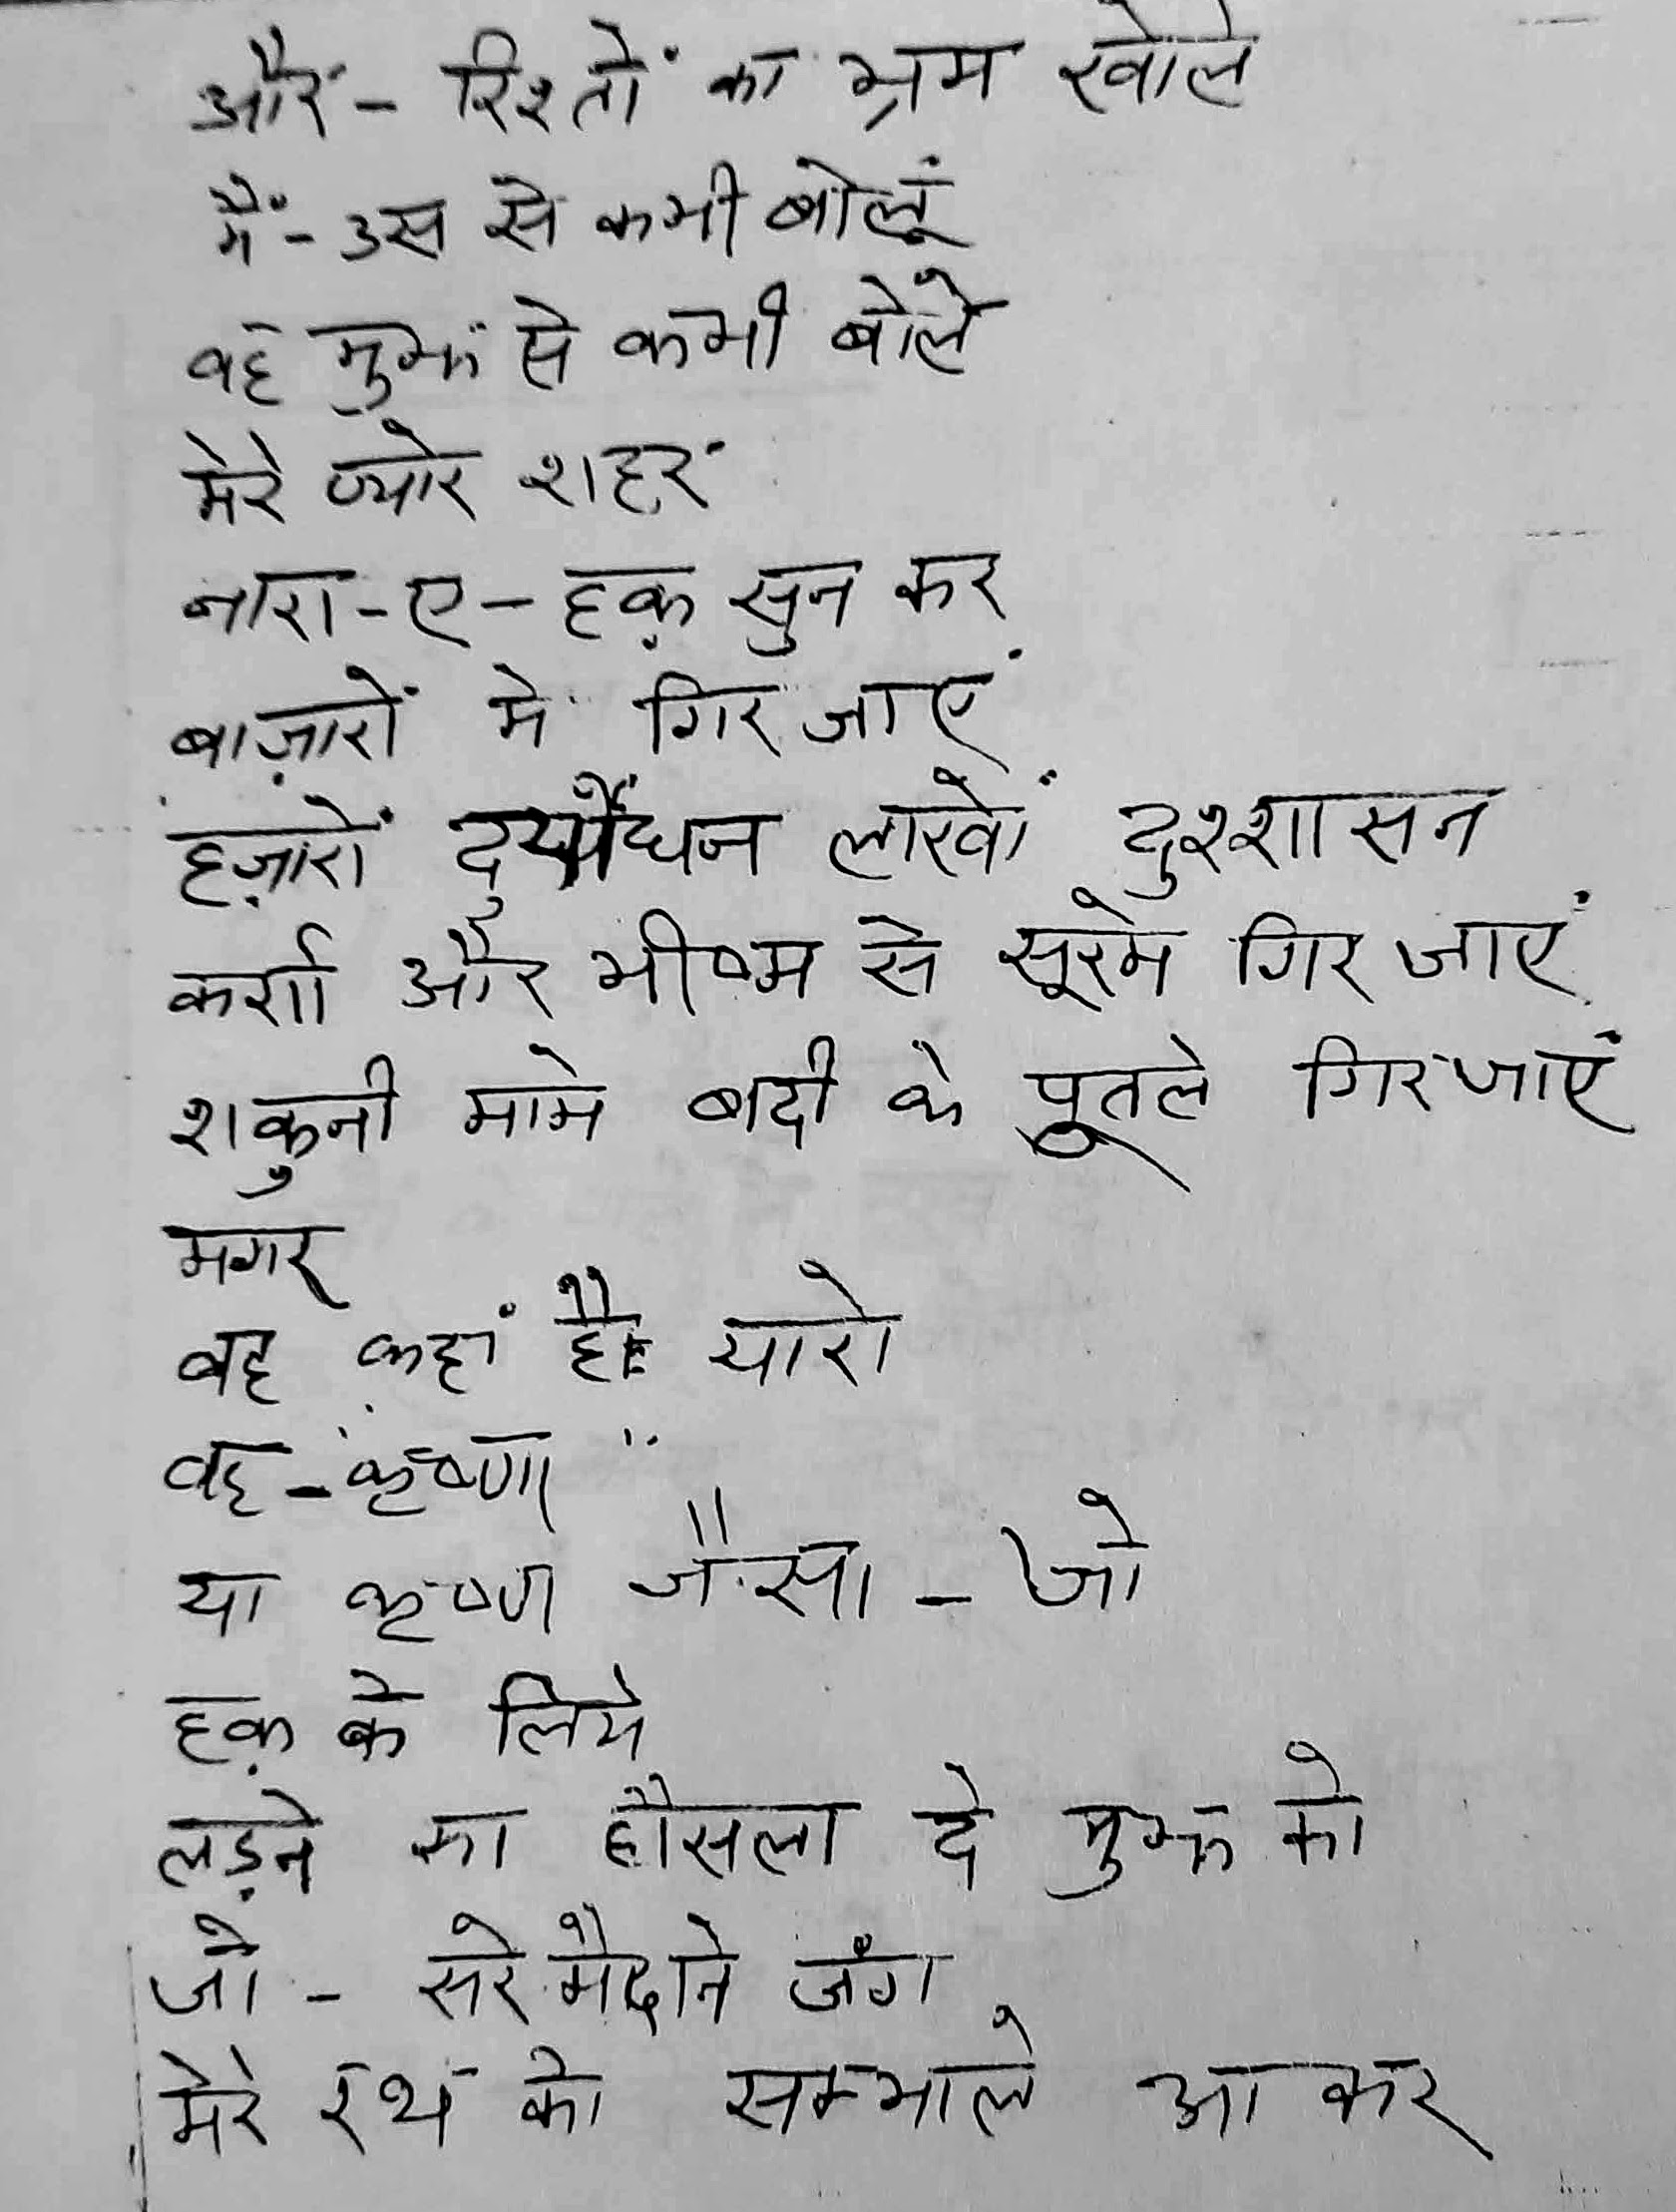 और - रिश्तों का भ्रम खोले
मैं - उस से कभी बोलूं
वह मुझ से कभी बोले
मेरे प्यारे शहर
नारा-ए-हक़ सुन कर
बाज़ारों में गिर जाएं
हज़ारों दुर्योधन लाखों दुश्शासन
कर्ण और भीष्म से सूरमे गिर जाएं
शकुनी मामे बदी के पूतले गिर जाएं
मगर
वह कहां है यारो
वह - "कृष्ण"
या कृष्ण जैसा - जो
हक़ के लिये
लड़ने का हौसला दे मुझ को
जो - सरे मैदाने जंग
मेरे रथ को सम्भाले आ कर